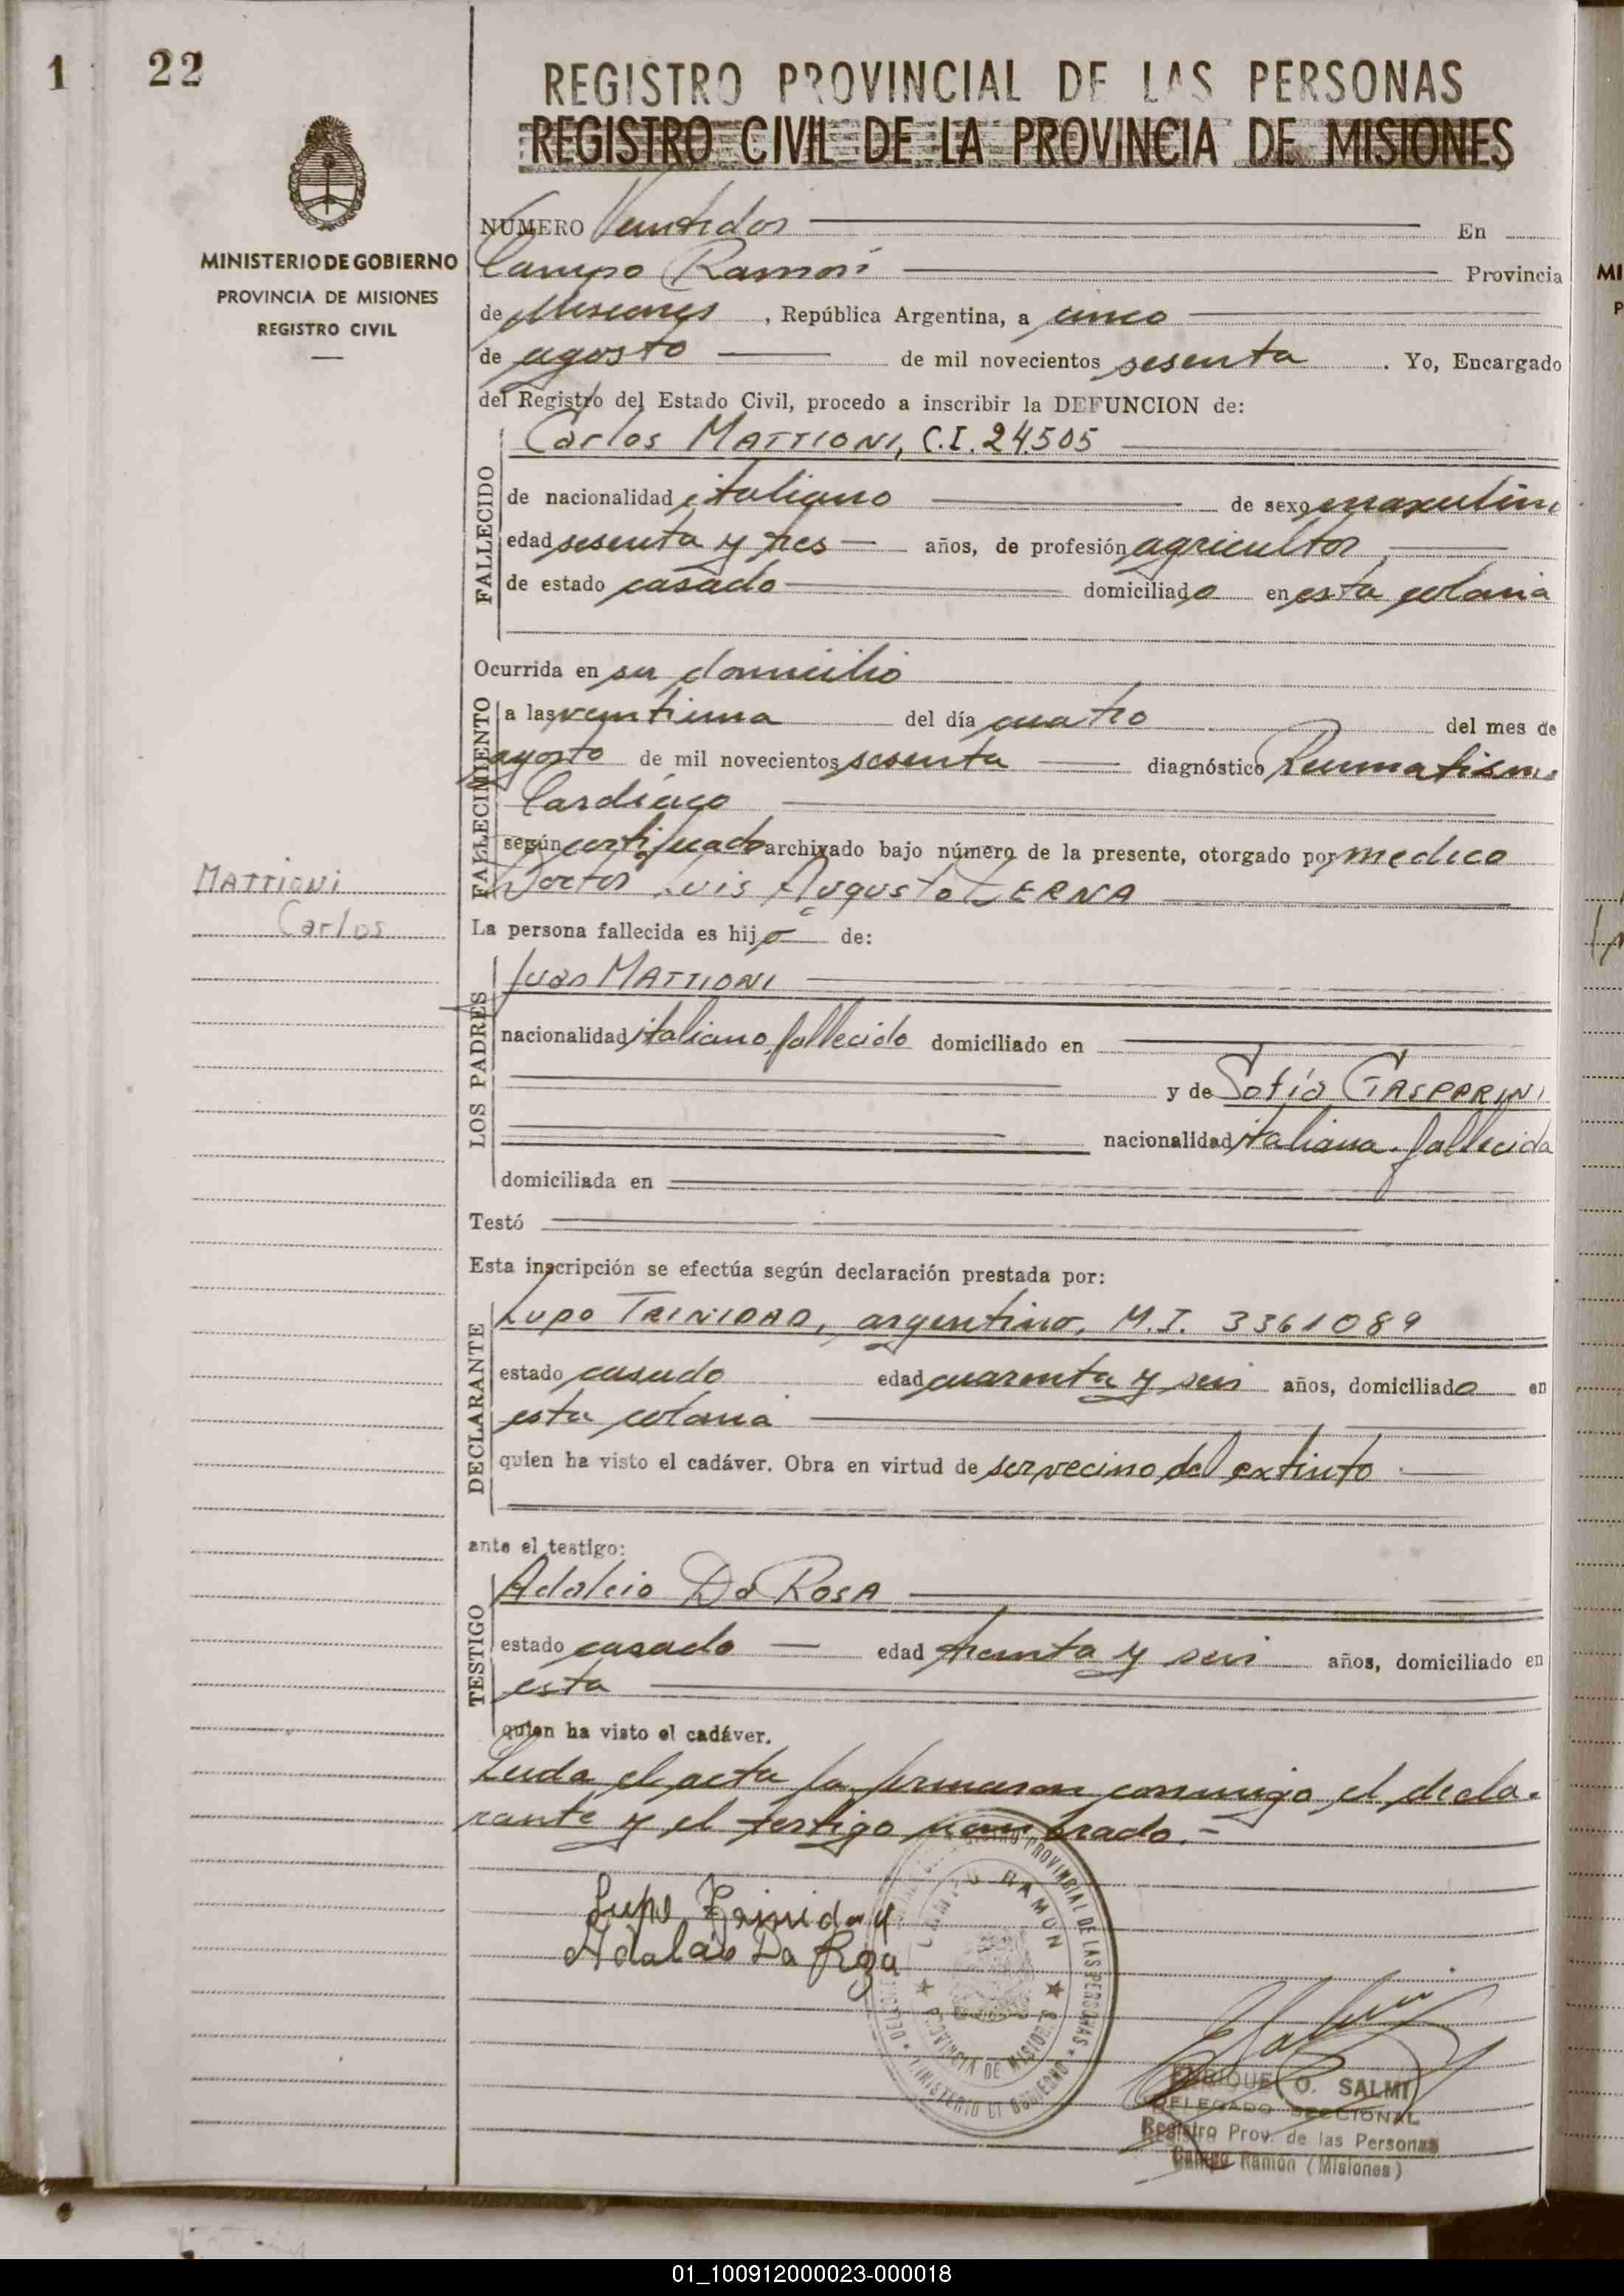 1 22
REGISTRO PROVINCIAL DE LAS PERSONAS
REGISTRO CIVIL DE LA PROVINCIA DE MISIONES
MINISTERIO DE GOBIERNO
PROVINCIA DE MISIONES
REGISTRO CIVIL
NÚMERO Veintidos En
Campo Ramón Provincia
de Misiones, República Argentina, a cinco
de agosto de mil novecientos sesenta. Yo, Encargado
del Registro del Estado Civil, procedo a inscribir la DEFUNCION de:
FALLECIDO
Carlos MATTIONI, C.I. 24.505
de nacionalidad italiano de sexo masculino
edad sesenta y tres años, de profesión agricultor
de estado casado domiciliado en esta colonia
Ocurrida en su domicilio
FALLECIMIENTO
a las veintiuna del día cuatro del mes de
agosto de mil novecientos sesenta diagnóstico Reumatismo
Cardíaco
según certificado archivado bajo número de la presente, otorgado por medico
Doctor Luis Augusto
MATTIONI
Carlos
La persona fallecida es hijo de:
LOS PADRES
Juan MATTIONI
nacionalidad italiano, fallecido domiciliado en
y de Sofía GASPERINI
nacionalidad italiana. fallecida
domiciliada en
Testó
Esta inscripción se efectúa según declaración prestada por:
DECLARANTE
Lupo TRINIDAD, argentino, M.I. 3361089
estado casado edad cuarenta y seis años, domiciliado en
esta colonia
quien ha visto el cadáver. Obra en virtud de ser vecino del extinto
ante el testigo:
TESTIGO
Adalcio Da ROSA
estado casado edad treinta y seis años, domiciliado en
esta
quien ha visto el cadáver.
Leida el acta la firmaron conmigo el decla-
rante y el testigo nombrado.-
Lupo Trinidad
Adalcio Da Roza
REGISTRO PROVINCIAL DE LAS PERSONAS
CAMPO RAMON
PROVINCIA DE MISIONES
MINISTERIO DE GOBIERNO
ENRIQUE O. SALMI
DELEGADO SECCIONAL
Registro Prov. de las Personas
Campo Ramón (Misiones)
01_100912000023-000018